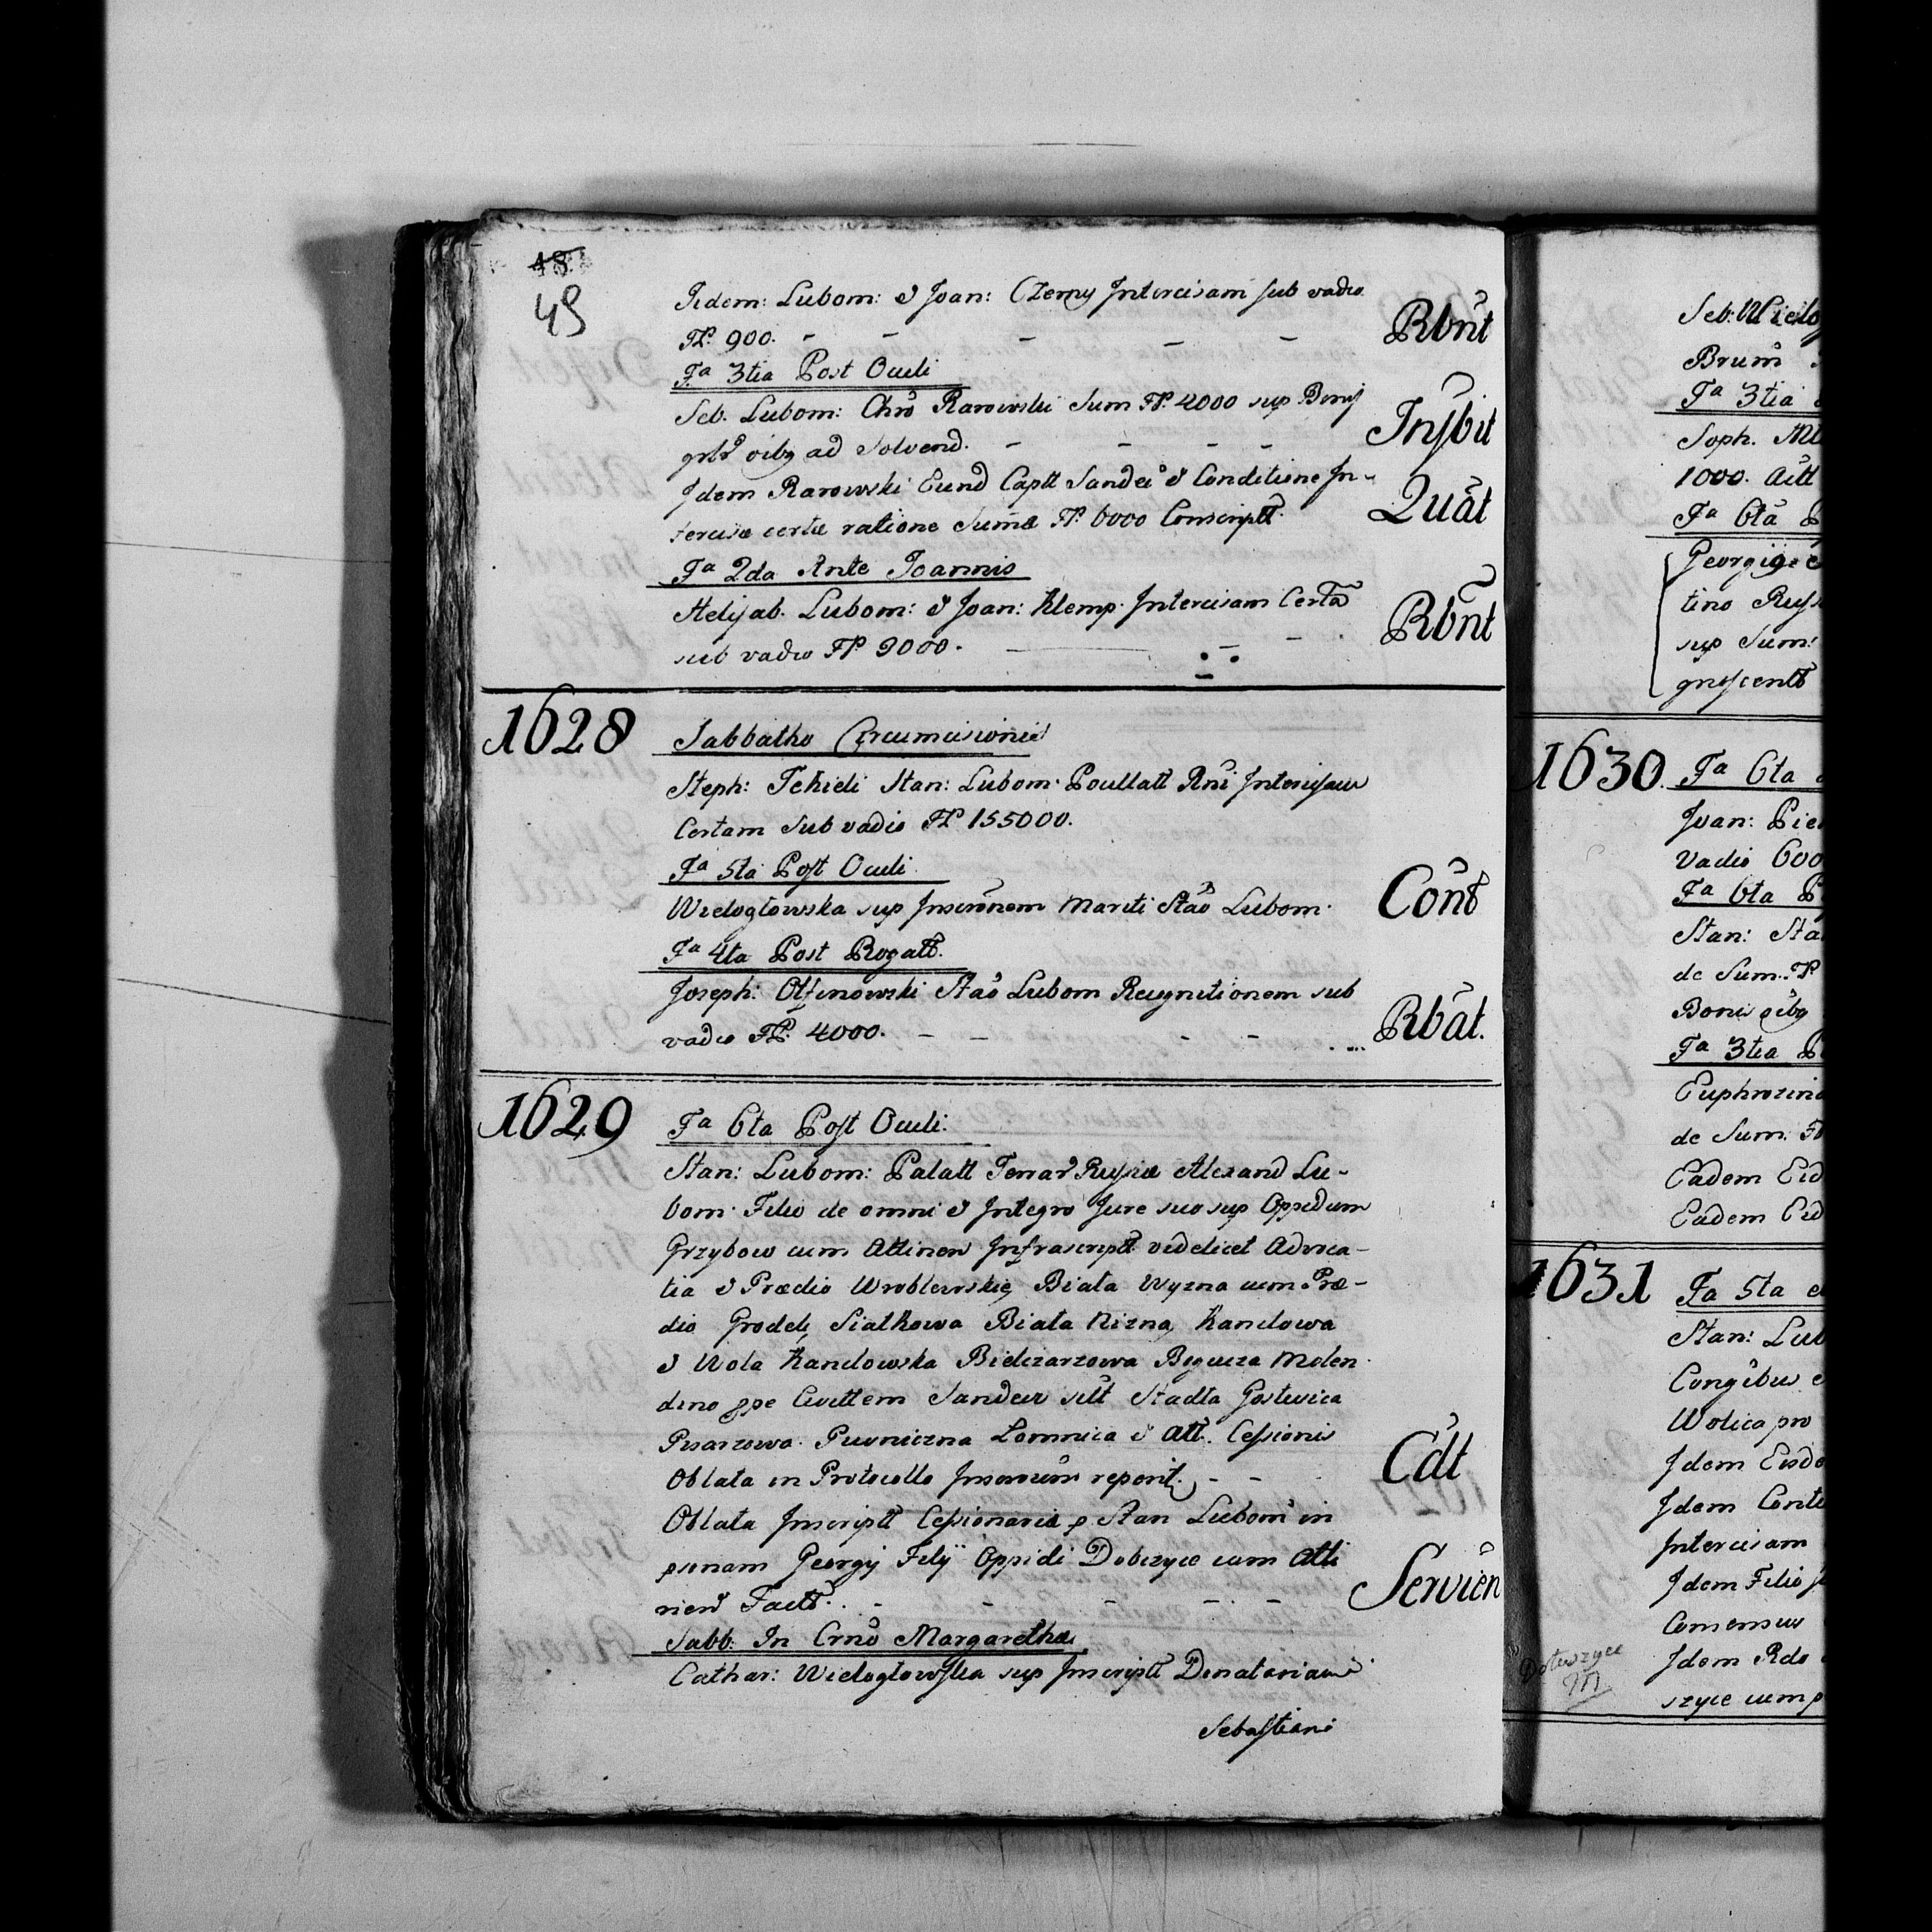 48
49
Iidem: Lubom: & Joan: Czerny Intercisam sub vadio
Fl. 900. - - - - -
Rbnt
Fa 3tia Post Oculi
Seb. Lubom: Chro Rarowski Sum Fl. 4000 sup Bonis
gnlr oibg ad Solvend. - - - -
Insbit
Idem Rarowski Eund Captt Sandec & Conditione In-
tercisæ certæ ratione Sumæ Fl. 6000 Conscriptt.
Quat
Fa 2da Ante Joannis
Helisab. Lubom: & Joan: Klemp. Intercisam Certa
sub vadio Fl. 9000. - - -
Rbnt
1628
Sabbatho Circumcisionis
Steph: Stan: Lubom: Rni Intercisam
Certam Sub vadio Fl 155000.
Fa 5ta Post Oculi
Wielogłowska sup Inscronem Mariti Stao Lubom.
Cont
Fa 4ta Post Rogatt.
Joseph: Otfinowski Stao Lubom Recognitionem sub
vadio Fl. 4000. - - - - ...
Rbat.
1629
Fa 6ta Post Oculi.
Stan: Lubom: Palatt Terrar Russiæ Alexand Lu-
bom. Filio de omni & Integro Jure suo sup Oppidum
Grzybow cum Attinen Infrascriptt. videlicet Advoca-
tia & Prædio Wroblewskie, Biała Wyzna cum Præ-
dio Grodek, Siatkowa Biała Nizna, Kanclowa
& Wola Kanclowska Bieliczarzowa Bogusza Molen
dino ppe Civittem Sandecz sitt Stadła Gostwica
Pisarzowa Piwniczna Łomnica & Att. Cessionis
Oblata in Protocollo reperit. - -
Cdt
Oblata Inscriptt Cessionariæ p Stan Lubom in
psonam Georgij Filij Oppidi Dobczyce cum Atti
nen Factt. - - - - -
Servien
Sabb. In Crno Margarethæ
Cathar: Wielogłowska sup Inscriptt Donatoriam
Sebastiani
Seb: Wielog
Brum
Fa 3tia
Soph.
1000. Actt
Fa 6ta P
Georgig
tino Russ
sup Sum:
gnoscentt
1630.
Fa 6ta
Joan: Pie
Vadio 600
Fa 6ta P
Stan: Sta
de Sum. Fl
Bonis oibg
Fa 3tia P
Euphrozina
de Sum. Fl
Eadem Eid
Eadem Eid
1631
Fa 5ta
Stan: Lub
Congibus
Wolica pro
Idem Eisdo
Idem Conte
Intercisam
Idem Filio
Consensus
Idem Rdo
szyce cum p